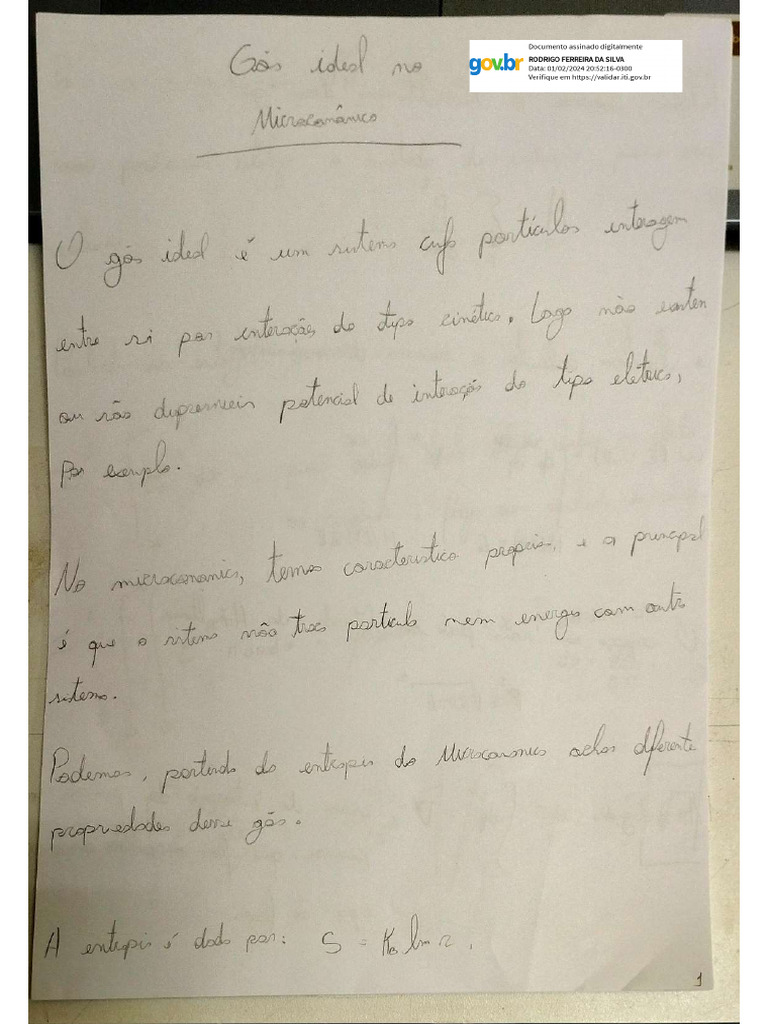 Documento assinado digitalmente
gov.br
RODRIGO FERREIRA DA SILVA
Data: 01/02/2024 20:52:16-0300
Verifique em https://validar.iti.gov.br
Gás ideal no
Microcanônico
O gás ideal é um sistema cujas partículas interagem
entre si por interações do tipo cinética. Logo não existem
ou são potencial de interação do tipo elétrica,
Por exemplo.
No microcanonico, temos característica própria, e a principal
é que o sistema não troca partícula nem energia com outro
sistema.
Podemos, partindo da entropia do Microcanonico achar diferente
propriedades desse gás.
A entropia é dada por: S = K_B ln Ω.
1